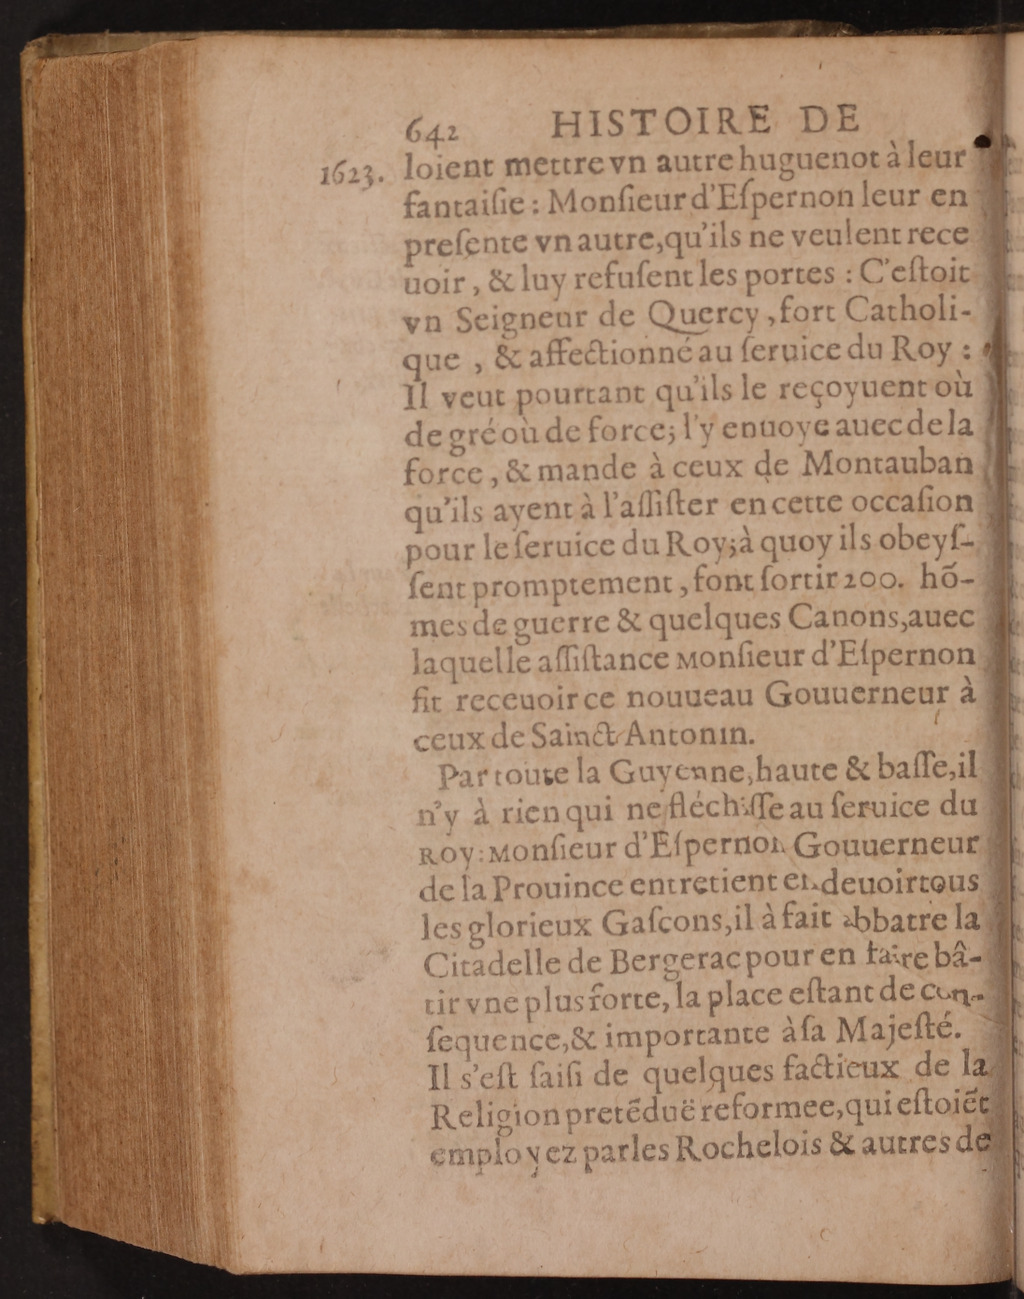 642 HISTOIRE DE
1623. loient mettre vn autre huguenot à leur
fantaiſie : Monſieur d'Eſpernon leur en
preſente vn autre, qu'ils ne veulent rece
uoir, & luy refuſent les portes : C'eſtoit
vn Seigneur de Quercy, fort Catholi-
que, & affectionné au ſeruice du Roy :
Il veut pourtant qu'ils le reçoyuent où
de gré où de force; l'y enuoye auec de la
force, & mande à ceux de Montauban
qu'ils ayent à l'aſſiſter en cette occaſion
pour le ſeruice du Roy; à quoy ils obeyſ-
ſent promptement, font ſortir 200. hō-
mes de guerre & quelques Canons, auec
laquelle aſſiſtance Monſieur d'Eſpernon
fit receuoir ce nouueau Gouuerneur à
ceux de Sainct Antonin.
Par toute la Guyenne, haute & baſſe, il
n'y à rien qui ne fléchiſſe au ſeruice du
ROY : Monſieur d'Eſpernon Gouuerneur
de la Prouince entretient en deuoir tous
les glorieux Gaſcons, il à fait abbatre la
Citadelle de Bergerac pour en faire bâ-
tir vne plus forte, la place eſtant de con-
ſequence, & importante à ſa Majeſté.
Il s'eſt ſaiſi de quelques factieux de la
Religion pretēduë reformee, qui eſtoiēt
employez par les Rochelois & autres de